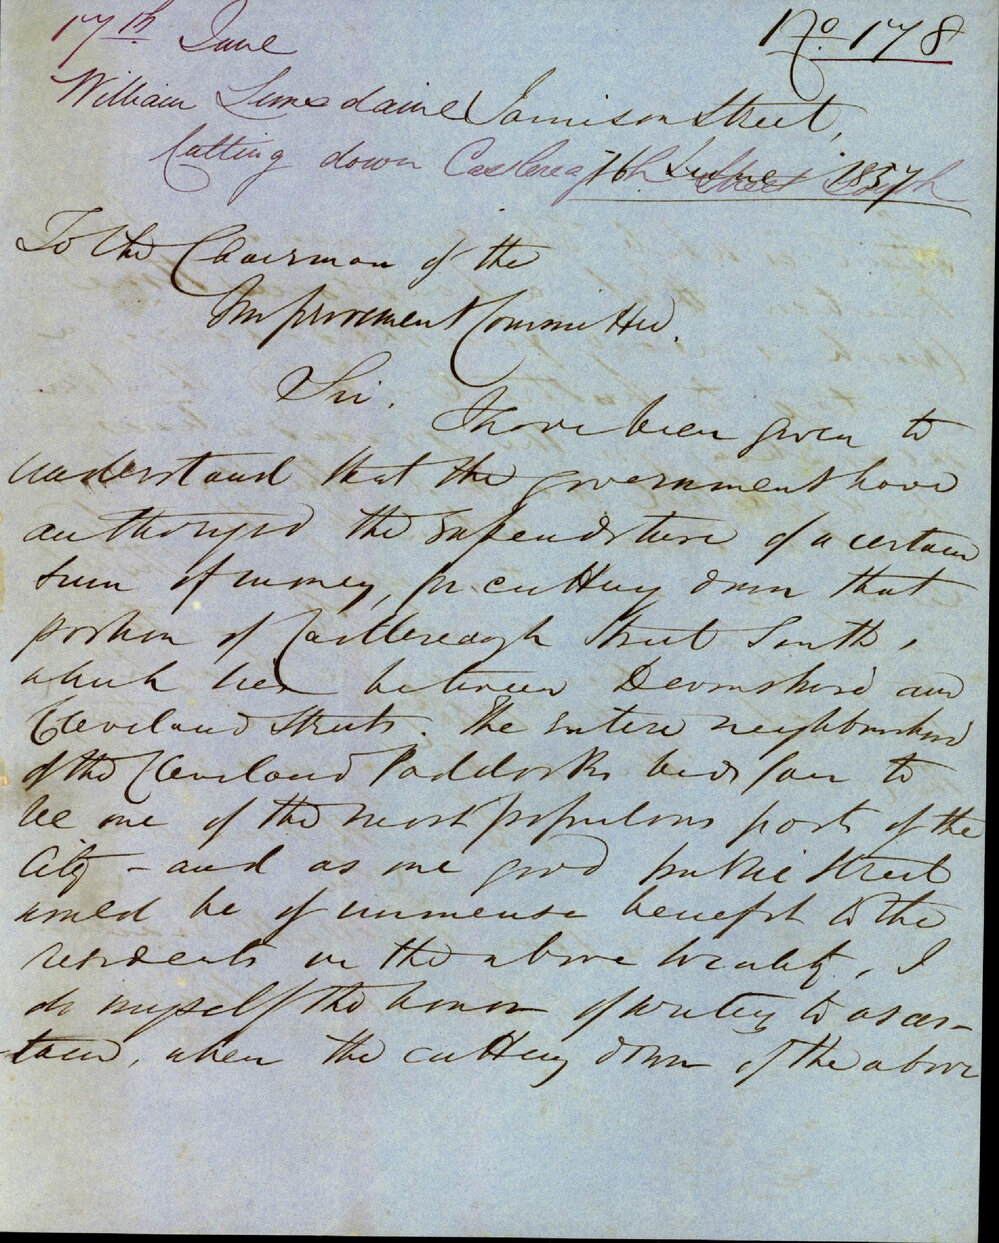 17th June
No. 178
William Lumsdaine Jamison Street,
Cutting down Castlereagh Street South
16th June 1857
To the Chairman of the
Improvement Committee.
Sir. I have been given to
understand that the government have
authorized the expenditure of a certain
sum of money, for cutting down that
portion of Castlereagh Street South,
which lies between Devonshire and
Cleveland Streets. The entire neighbourhood
of the Cleveland Paddocks bids fair to
be one of the most populous parts of the
City – and as one good public Street
would be of immense benefit to the
residents in the above locality, I
do myself the honor of writing to ascer-
tain, when the cutting down of the above